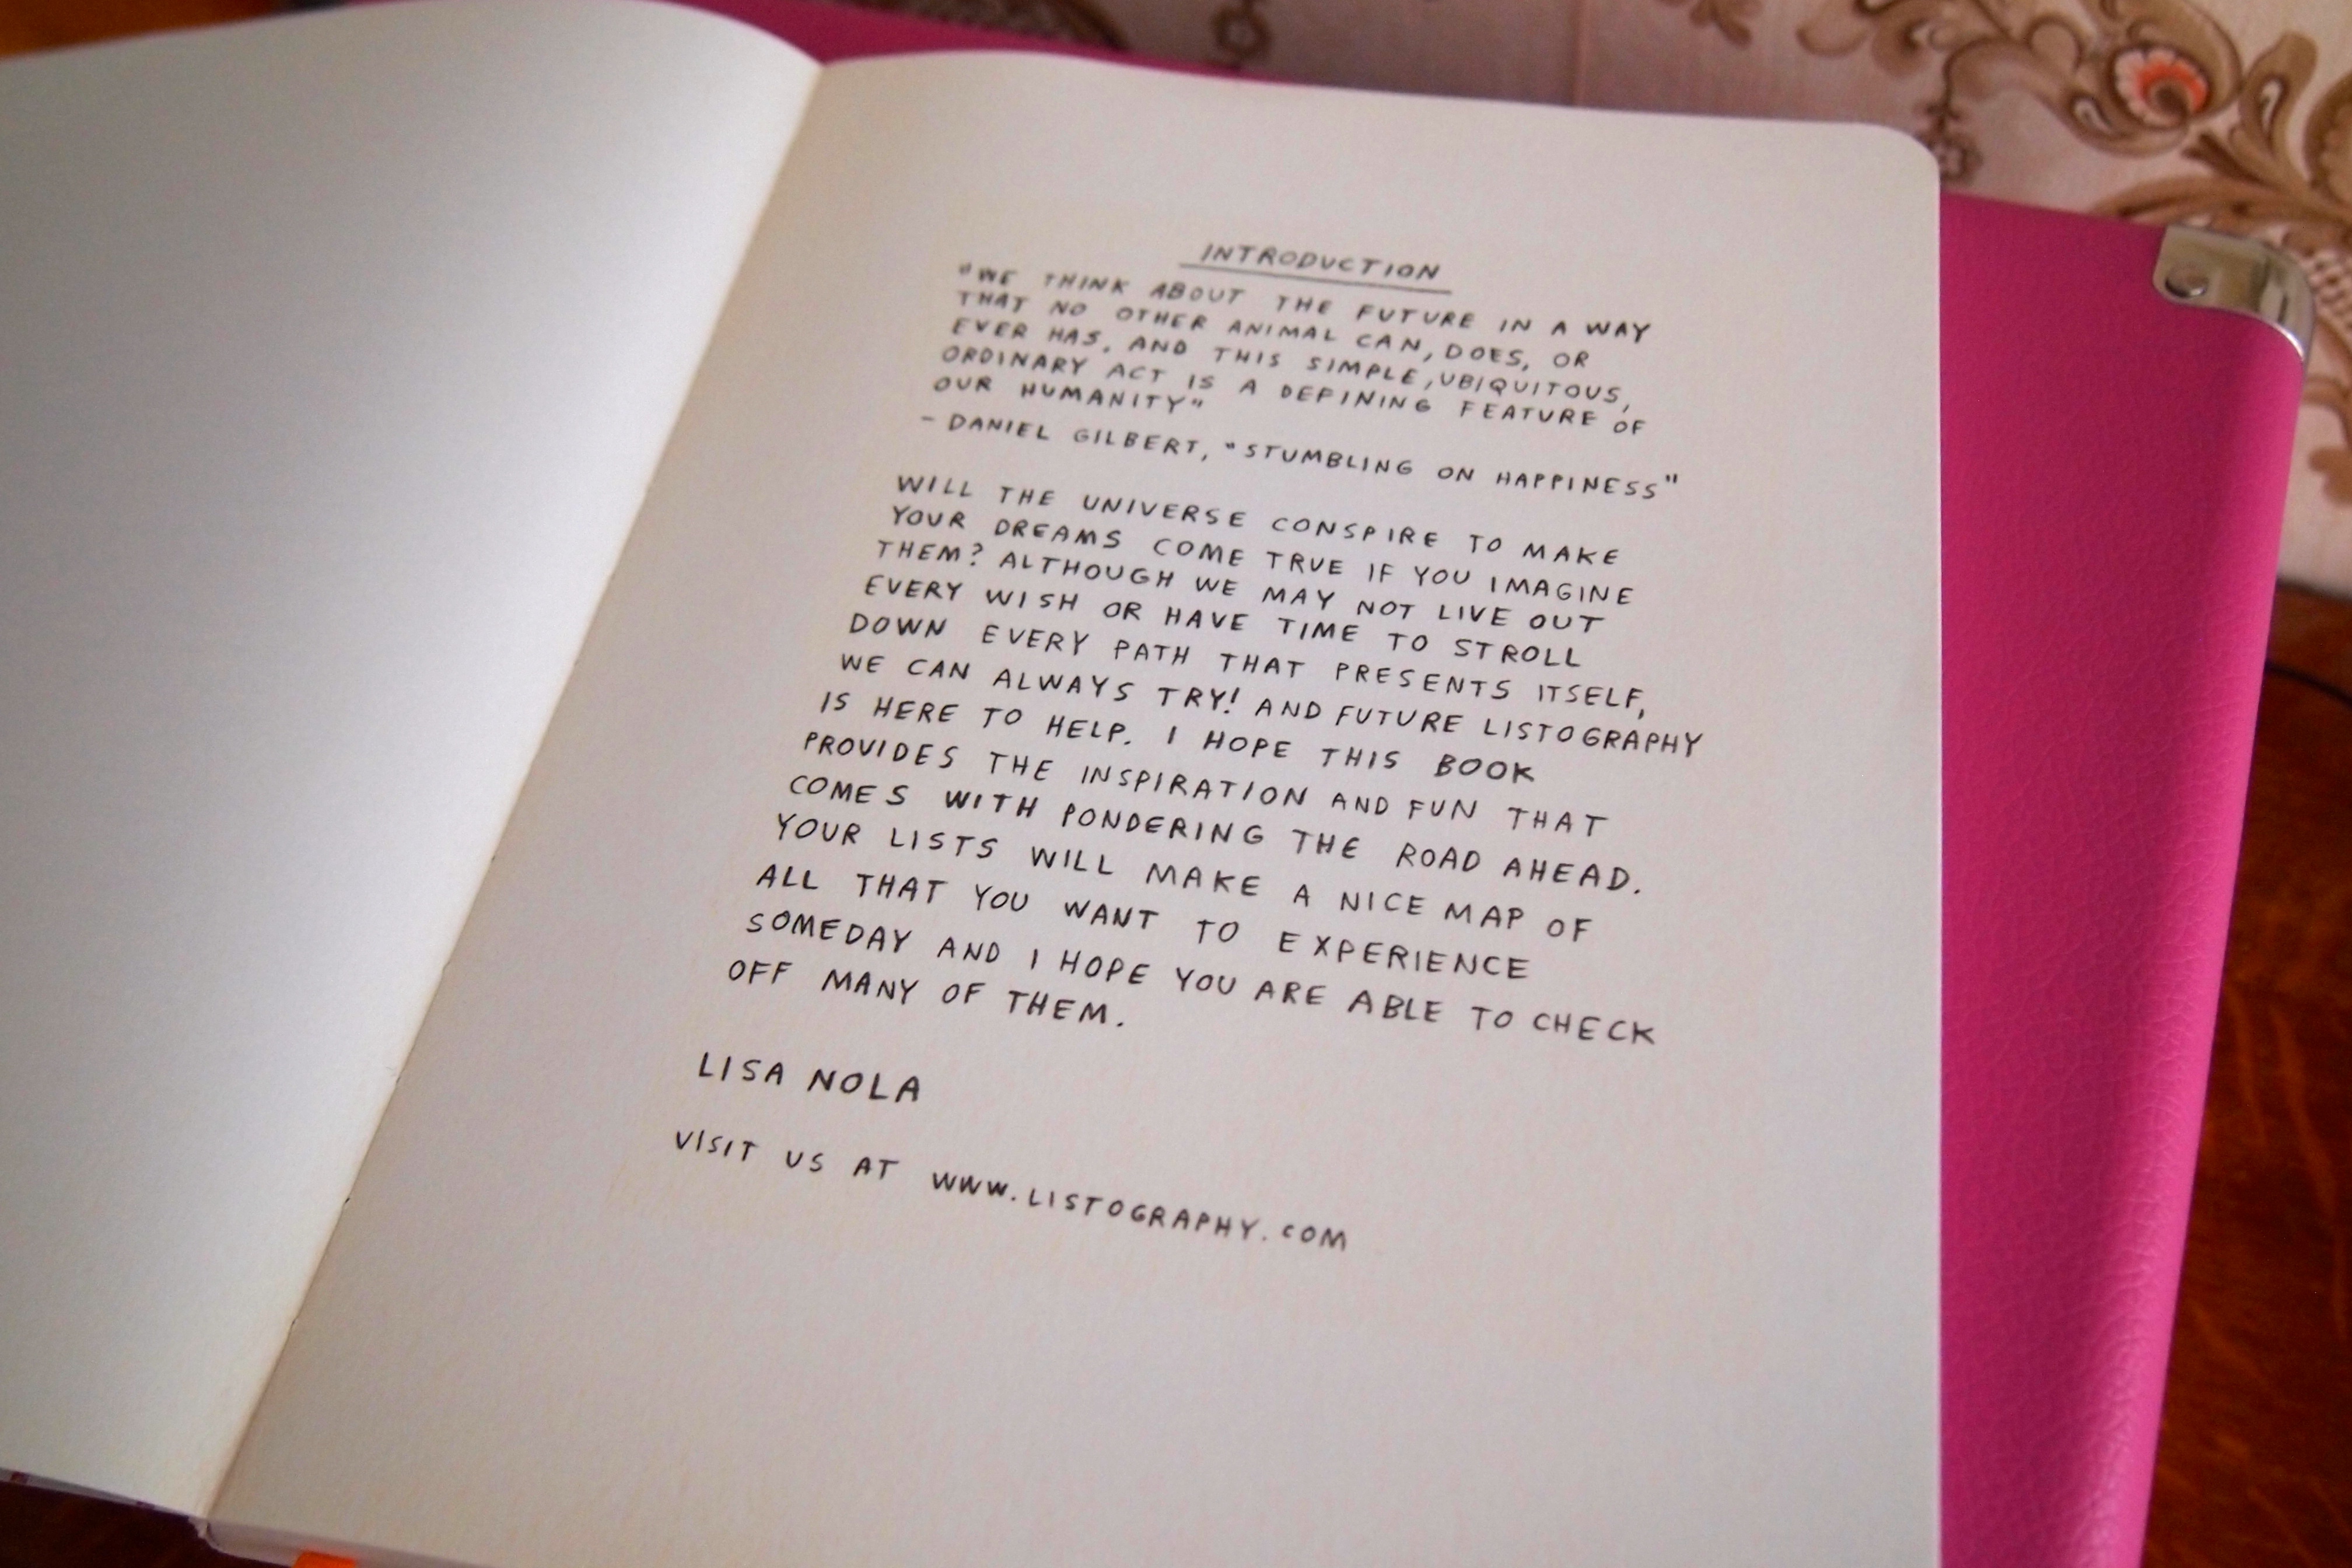 INTRODUCTION
"WE THINK ABOUT THE FUTURE IN A WAY
THAT NO OTHER ANIMAL CAN, DOES, OR
EVER HAS. AND THIS SIMPLE, UBIQUITOUS,
ORDINARY ACT IS A DEFINING FEATURE OF
OUR HUMANITY"
- DANIEL GILBERT, "STUMBLING ON HAPPINESS"
WILL THE UNIVERSE CONSPIRE TO MAKE
YOUR DREAMS COME TRUE IF YOU IMAGINE
THEM? ALTHOUGH WE MAY NOT LIVE OUT
EVERY WISH OR HAVE TIME TO STROLL
DOWN EVERY PATH THAT PRESENTS ITSELF,
WE CAN ALWAYS TRY! AND FUTURE LISTOGRAPHY
IS HERE TO HELP. I HOPE THIS BOOK
PROVIDES THE INSPIRATION AND FUN THAT
COMES WITH PONDERING THE ROAD AHEAD.
YOUR LISTS WILL MAKE A NICE MAP OF
ALL THAT YOU WANT TO EXPERIENCE
SOMEDAY AND I HOPE YOU ARE ABLE TO CHECK
OFF MANY OF THEM.
LISA NOLA
VISIT US AT WWW.LISTOGRAPHY.COM